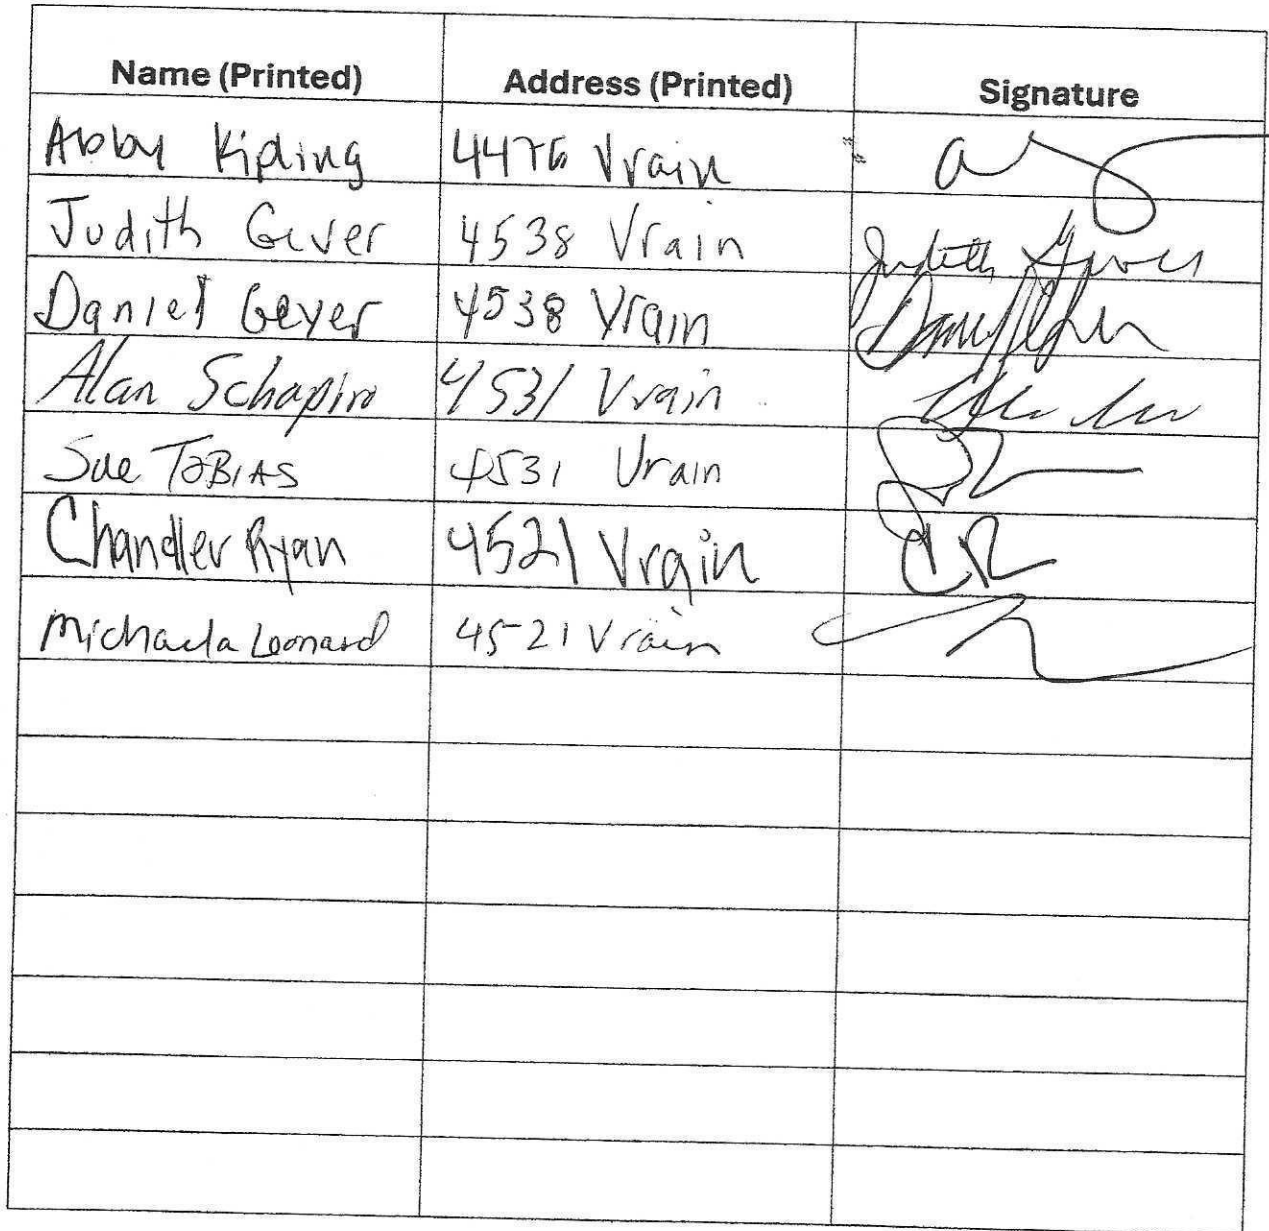 Name (Printed) Address (Printed) Signature
Abby Kipling 4476 Vrain
Judith Geyer 4538 Vrain Judith Geyer
Daniel Geyer 4538 Vrain
Alan Schapiro 4531 Vrain
Sue TOBIAS 4531 Vrain
Chandler Ryan 4521 Vrain CR
Michaela Leonard 4521 Vrain